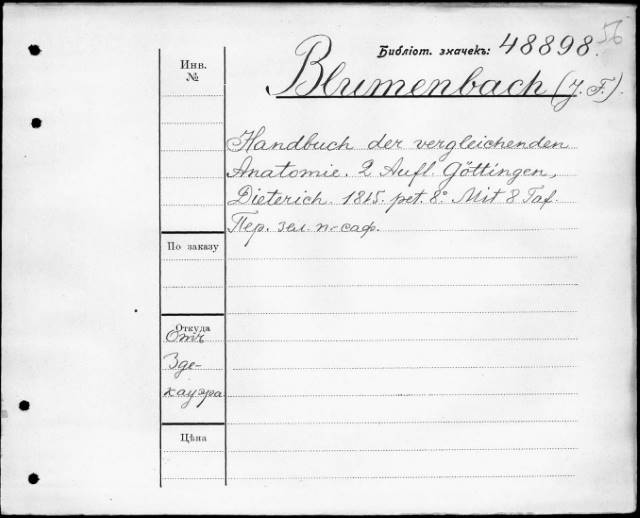 56
Библіот. значекъ: 48898.
Blumenbach (J. F.).
Инв.
№
Handbuch der vergleichenden
Anatomie. 2 Aufl. Göttingen,
Dieterich. 1815. pet. 8.° Mit 8 Taf.
Пер. зел. п.-саф.
По заказу
Откуда
Отъ
Зде-
кауэра
Цѣна